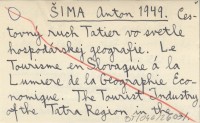 ŠIMA Anton 1949. Ces-
tovný ruch Tatier vo svetle
hospodárskej geografie. Le
Tourisme en Slovaquie à la
Lumiere de la Géographie Eco-
nomique. The Tourist Industry
of the Tatra Region in the